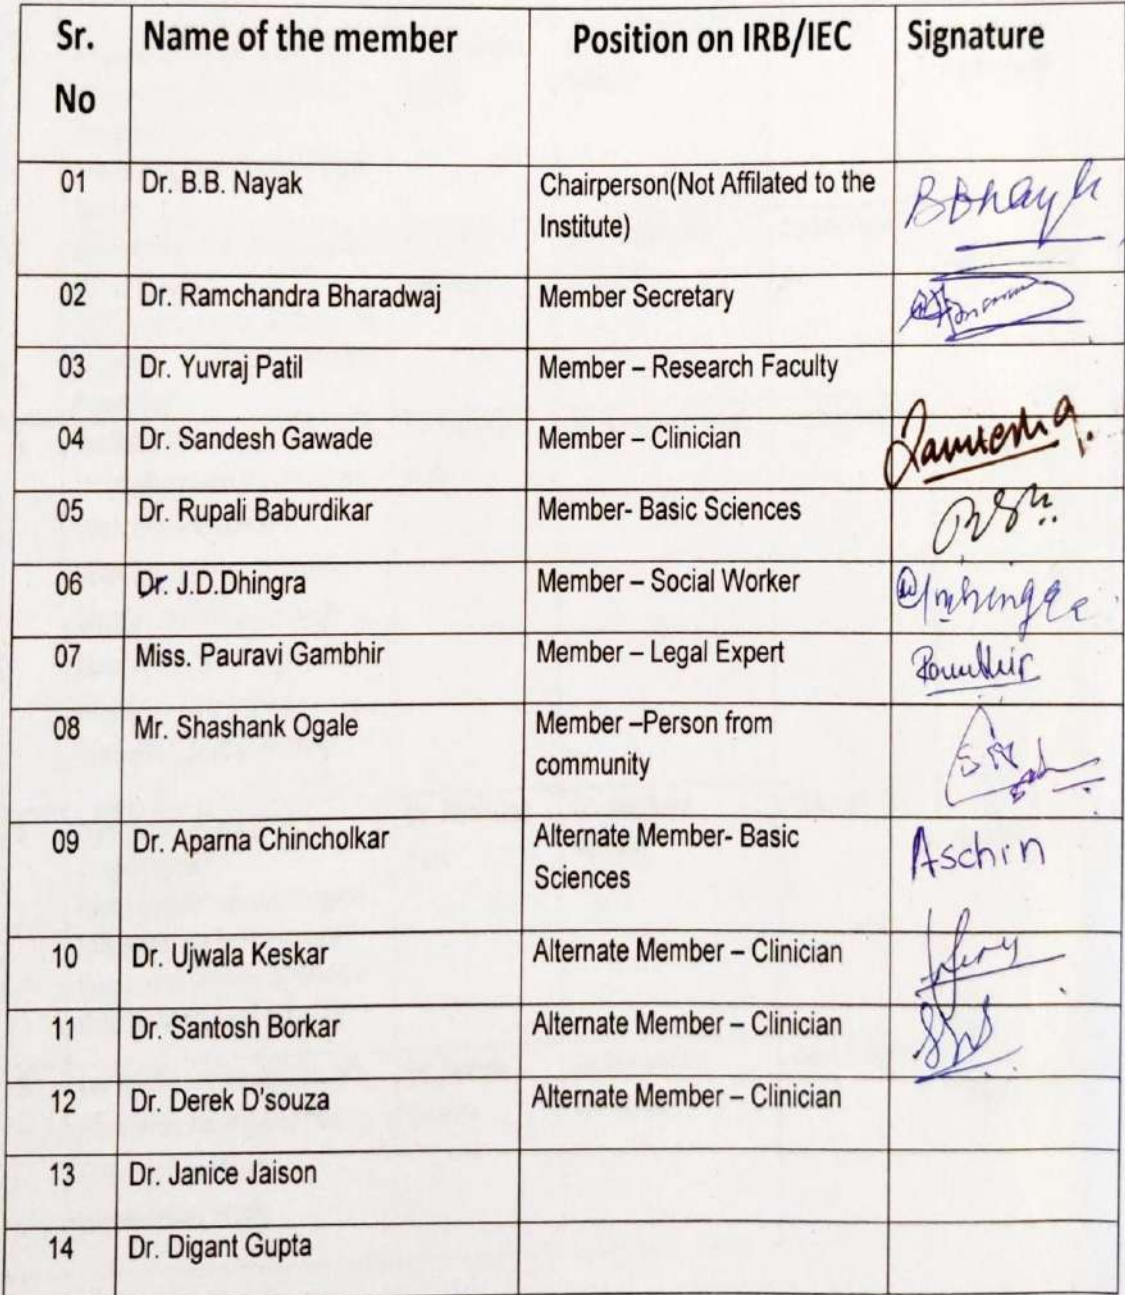 Sr.
No
Name of the member
Position on IRB/IEC
Signature
01
Dr. B.B. Nayak
Chairperson(Not Affilated to the
Institute)
BBnayk
02
Dr. Ramchandra Bharadwaj
Member Secretary
03
Dr. Yuvraj Patil
Member – Research Faculty
04
Dr. Sandesh Gawade
Member – Clinician
05
Dr. Rupali Baburdikar
Member- Basic Sciences
06
Dr. J.D.Dhingra
Member – Social Worker
07
Miss. Pauravi Gambhir
Member – Legal Expert
08
Mr. Shashank Ogale
Member –Person from
community
09
Dr. Aparna Chincholkar
Alternate Member- Basic
Sciences
Aschin
10
Dr. Ujwala Keskar
Alternate Member – Clinician
11
Dr. Santosh Borkar
Alternate Member – Clinician
12
Dr. Derek D'souza
Alternate Member – Clinician
13
Dr. Janice Jaison
14
Dr. Digant Gupta